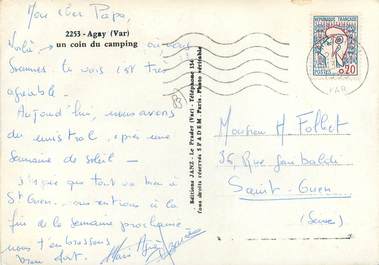 Mon cher Papa,
2253 - Agay (Var)
un coin du camping
Voilà où nous
sommes. Le coin est très
agréable -
Aujourd'hui, nous avons
du mistral, après une
semaine de soleil -
J'espère que tout va bien à
St Ouen, nous rentrons à la
fin de la semaine prochaine
nous t'embrassons
bien fort.
Editions JANZ - Le Pradet (Var) - Téléphone 154
tous droits réservés SPADEM, Paris. Photo véritable
83
REPUBLIQUE FRANÇAISE
POSTES 0,20
VAR
Monsieur H. Follet
36, Rue Garibaldi
Saint-Ouen
(Seine)